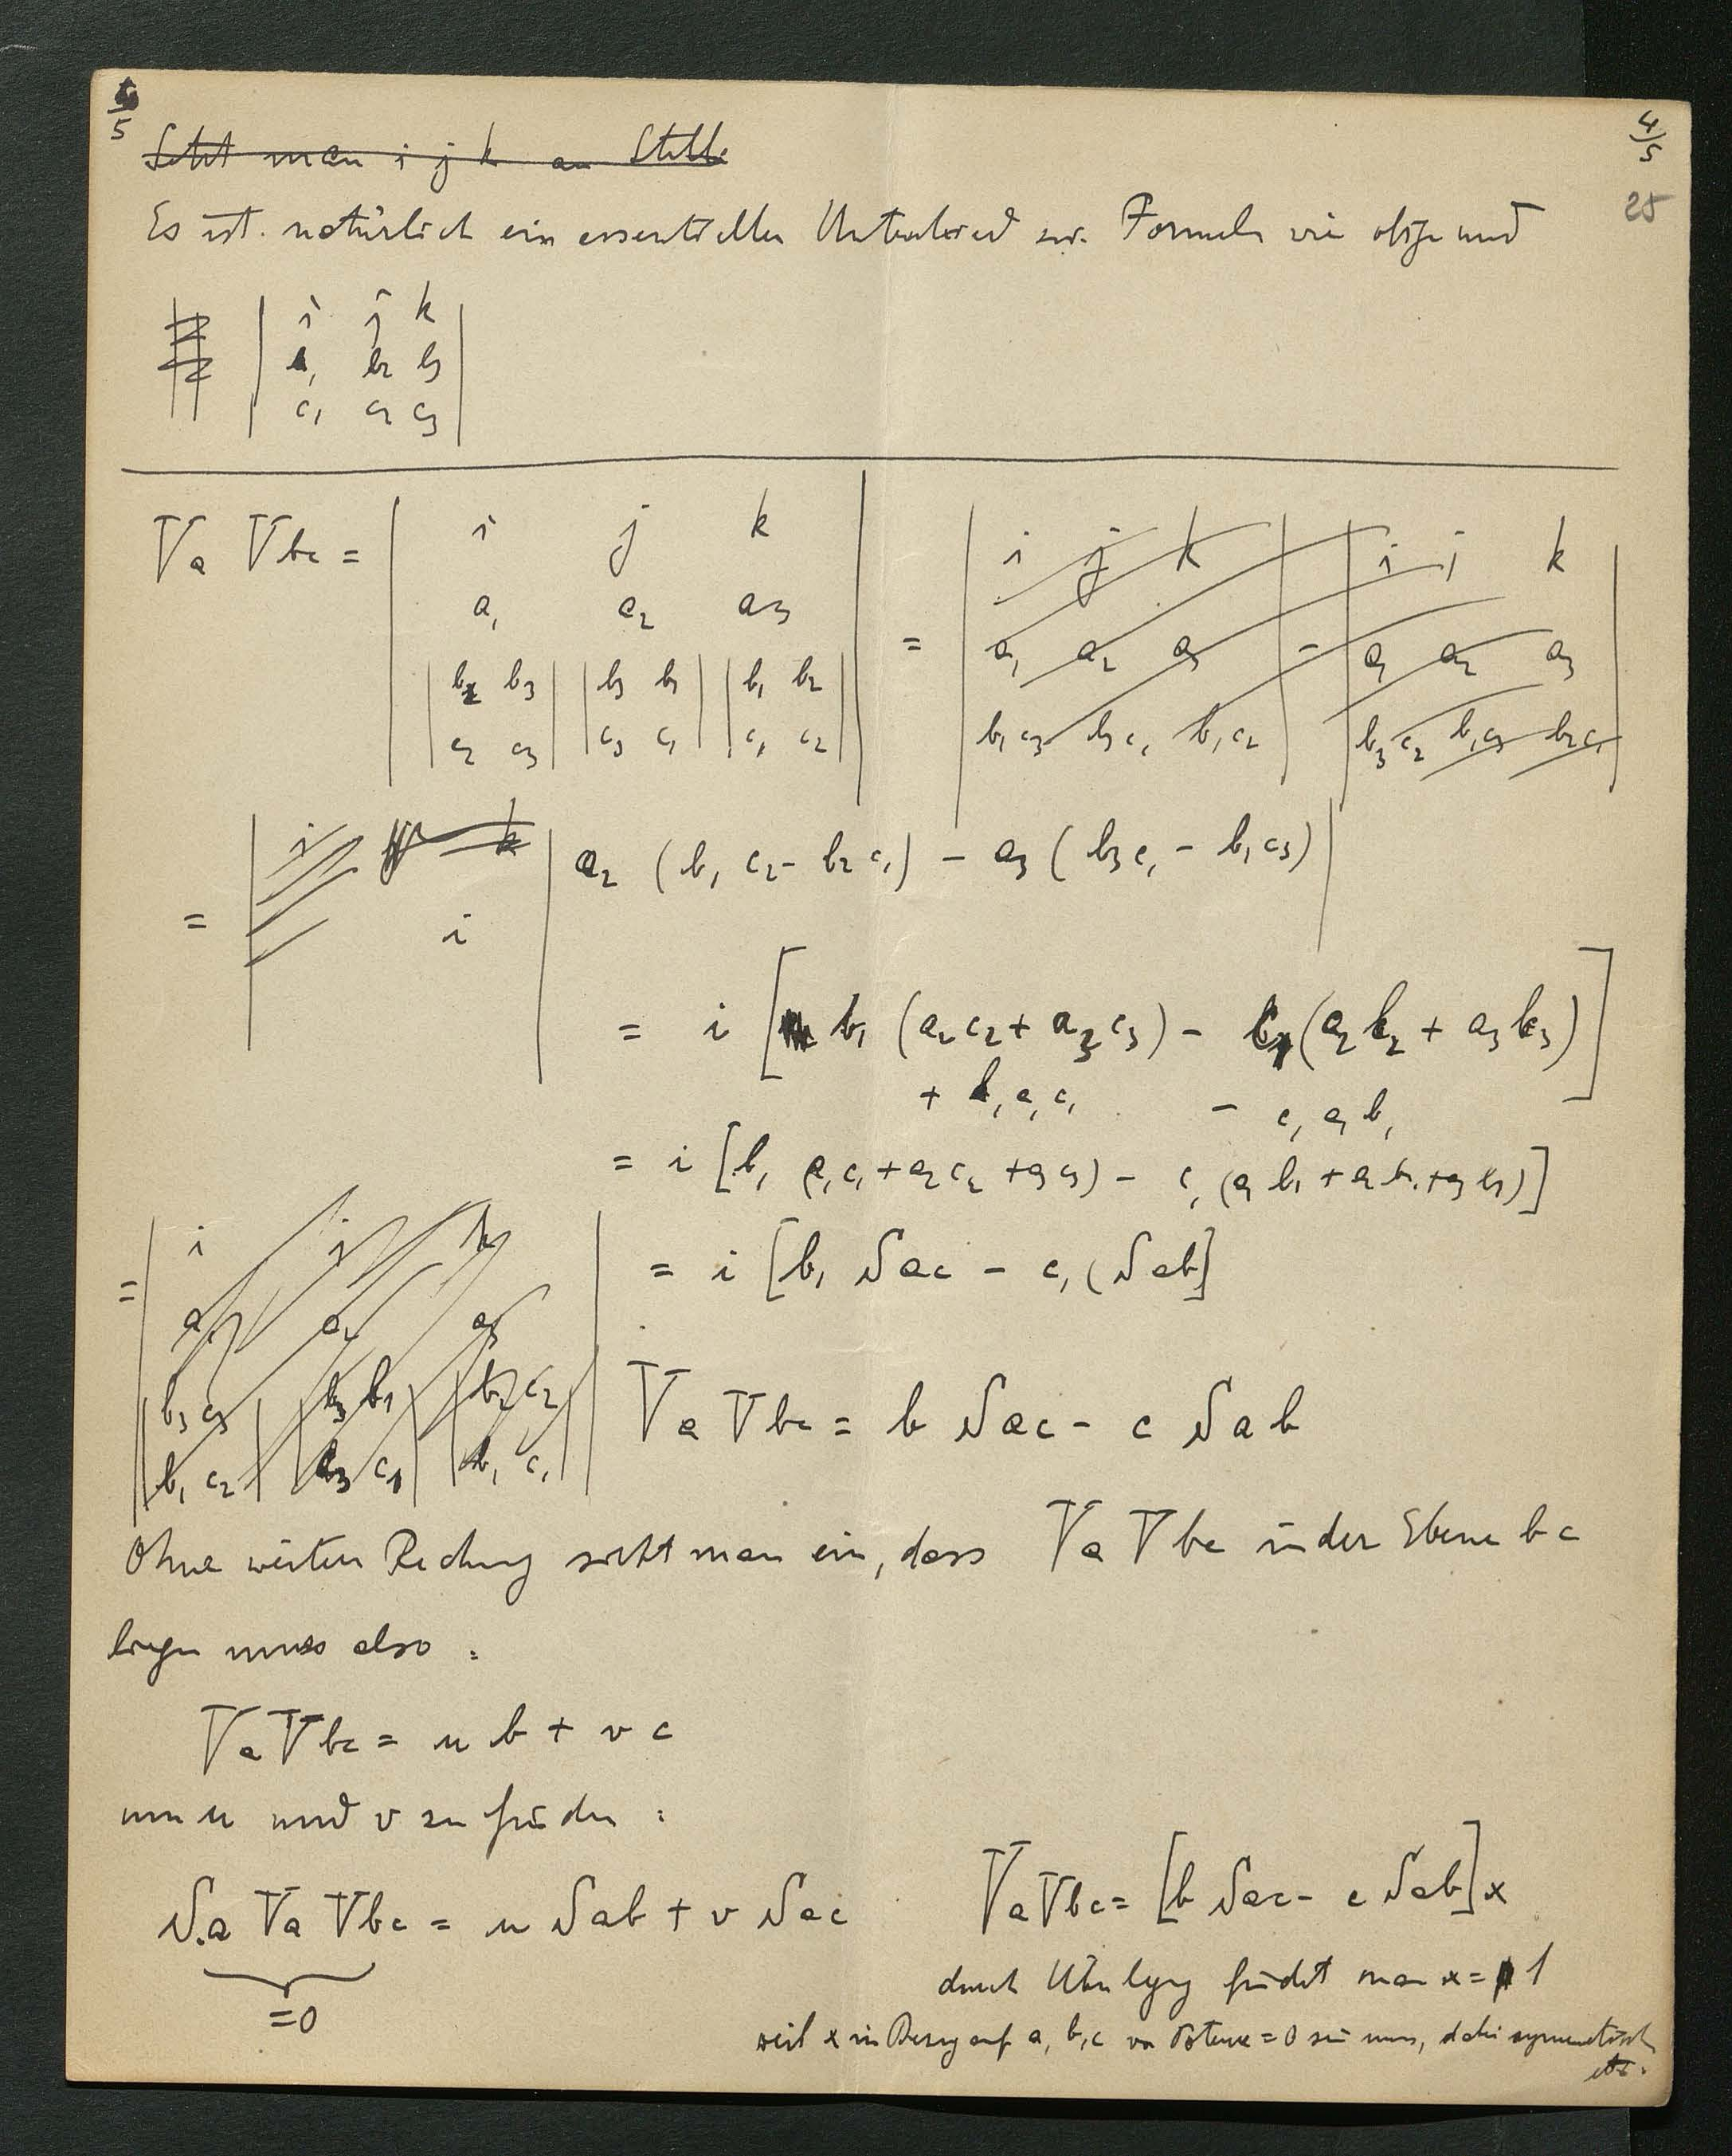 4/5
25
Setzt man i j k an Stelle
Es ist natürlich ein essentieller Unterschied zw. Formeln wie obige und
| i j k |
| b₁ b₂ b₃ |
| c₁ c₂ c₃ |
Va Vbc = | i j k | = | i j k | - | i j k |
| a₁ a₂ a₃ | | a₁ a₂ a₃ | | a₁ a₂ a₃ |
| |b₂ b₃| |b₃ b₁| |b₁ b₂| | | b₁c₃ b₃c₁ b₁c₂ | | b₃c₂ b₁c₃ b₂c₁ |
| |c₂ c₃| |c₃ c₁| |c₁ c₂| |
= | i j k | a₂ (b₁ c₂ - b₂ c₁) - a₃ (b₃c₁ - b₁c₃) |
i
= i [b₁ (a₂c₂ + a₃c₃) - c₁ (a₂b₂ + a₃b₃)]
+ b₁a₁c₁ - c₁a₁b₁
= i [b₁ (a₁c₁ + a₂c₂ + a₃c₃) - c₁ (a₁b₁ + a₂b₂ + a₃b₃)]
= | i j k | = i [b₁ Sac - c₁ (Sab]
| a₁ a₂ a₃ |
| |b₃ c₃| |b₃ b₁| |b₂ c₂| |
| |b₁ c₂| |c₃ c₁| |b₁ c₁| |
Va Vbc = b Sac - c Sab
Ohne weitere Rechnung sieht man ein, dass Va Vbc in der Ebene bc
liegen muss also :
Va Vbc = u b + v c
um u und v zu finden :
S.a Va Vbc = u Sab + v Sac
=0
VaVbc = [b Sac - c Sab] x
durch Überlegung findet man x = 1
weil x in Bezug auf a, b, c von Potenz = 0 sein muss, dabei symmetrisch
etc.